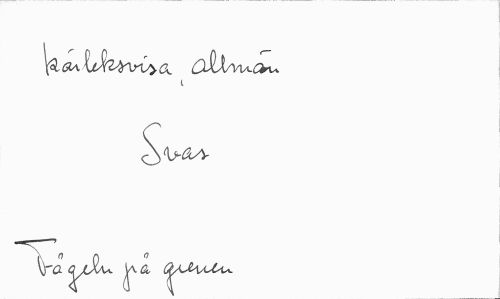 kärleksvisa, allmän
Svar
Fågeln på grenen